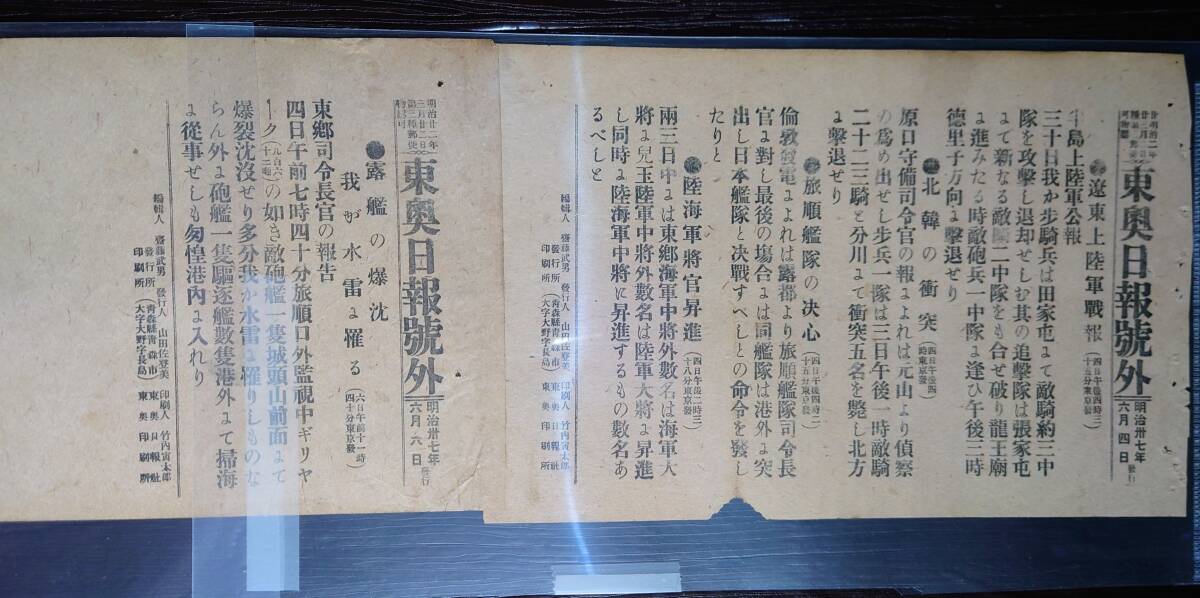 東奧日報號外
明治卅七年
六月四日
發行
●遼東上陸軍戰報(四日午後四時三十五分東京發)
半島上陸軍公報
三十日我か歩騎兵は田家屯よて敵騎約三中
隊を攻擊し退却せしむ其の追擊隊は張家屯
よて新なる敵騎二中隊をも合せ破り龍王廟
よ進みたる時敵砲兵一中隊よ逢ひ午後二時
德里子方向よ擊退せり
●北韓の衝突(四日午後四時東京發)
原口守備司令官の報よよれは元山より偵察
の爲め出せし歩兵一隊は三日午後一時敵騎
二十二三騎と分川よて衝突五名を斃し北方
よ擊退せり
●旅順艦隊の決心(四日午後四時二十五分東京發)
倫敦發電よよれは露都より旅順艦隊司令長
官よ對し最後の塲合よは同艦隊は港外よ突
出し日本艦隊と決戰すべしとの命令を發し
たりと
●陸海軍將官昇進(四日午後二時三十八分東京發)
兩三日中よは東鄕海軍中將外數名は海軍大
將よ兒玉陸軍中將外數名は陸軍大將よ昇進
し同時よ陸海軍中將に昇進するもの數名あ
るべしと
編輯人 齋藤武男 發行人 山田佐登美 印刷人 竹内寅太郎
發行所(靑森縣靑森市)東奧日報社
印刷所(大字大野字長島)東奧印刷所
明治廿二年
三月廿二日
第三種郵便
物認可
東奧日報號外
明治卅七年
六月六日
發行
●露艦の爆沈
我が水雷よ罹る(六日午前十一時四十分東京發)
東鄕司令長官の報告
四日午前七時四十分旅順口外監視中ギリヤ
ーク(九百六十二噸)の如き敵砲艦一隻城頭山前面よて
爆裂沈沒せり多分我か水雷よ罹りしものな
らん外よ砲艦一隻驅逐艦數隻港外よて掃海
よ從事せしも匆惶港内よ入れり
編輯人 齋藤武男 發行人 山田佐登美 印刷人 竹内寅太郎
發行所(靑森縣靑森市)東奧日報社
印刷所(大字大野字長島)東奧印刷所